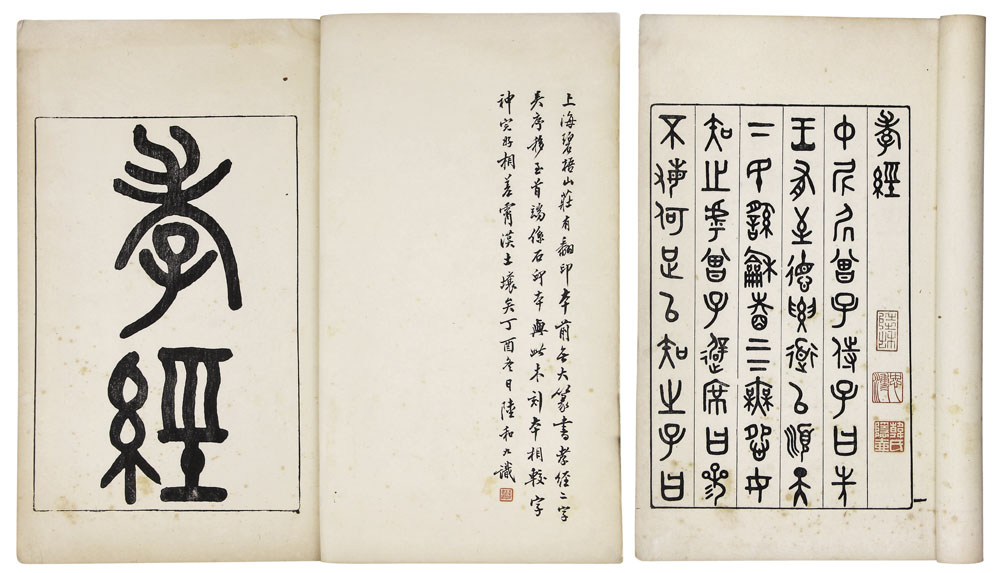 孝經
上海碧梧山莊有翻印本前無大篆書孝經二字
吳序移至首端係石印本與此木刻本相較字
神完好相差霄漢土壤矣丁酉冬日陸和九識
孝經
中尼凥曾子侍子曰先
王有至德要道以順天
下民繇龢睦上下無怨女
知之乎曾子避席曰參
不敏何足以知之子曰
一